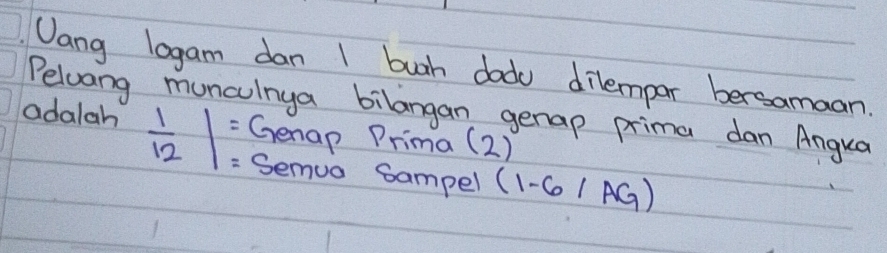 . Uang logam dan 1 buah dadu dilempar bersamaan.
Peluang munculnya bilangan genap prima dan Angka
adalah 1/12 | = Genap Prima (2)
= Semua Sampel (1-6 / AG)